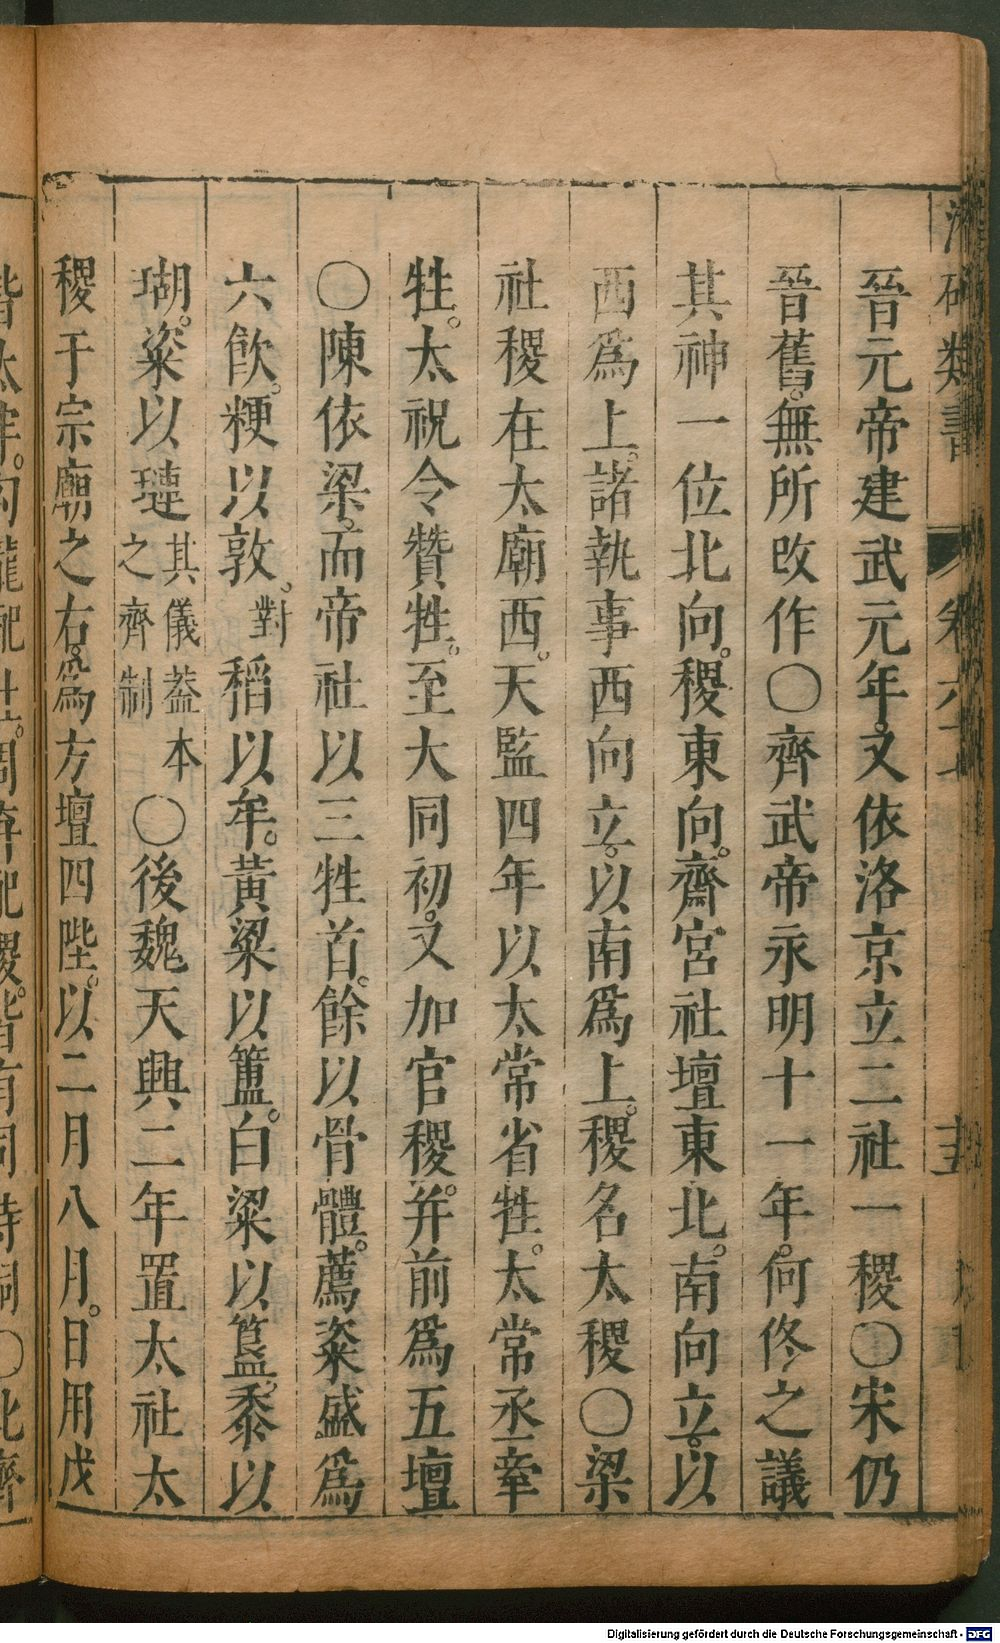 晉元帝建武元年。又依洛京立二社一稷○宋仍
晉舊。無所改作○齊武帝永明十一年。何佟之議
其神一位北向。稷東向。齋宮社壇東北。南向立。以
西爲上。諸執事西向立。以南爲上。稷名太稷○梁
社稷在太廟西。天監四年以太常省牲。太常丞牽
牲。太祝令贊牲。至大同初。又加官稷。并前爲五壇
○陳依梁。而帝社以三牲首。餘以骨體。薦粢盛爲
六飲。粳以敦。對稻以牟。黃粱以簠。白粱以簋。黍以
瑚。粢以璉其儀葢本之齊制○後魏天興二年置太社太
稷于宗廟之右。爲方壇四陛。以二月八月。日用戊
類書
Digitalisierung gefördert durch die Deutsche Forschungsgemeinschaft - DFG